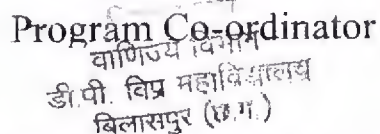 Program Co-ordinator
वाणिज्य विभाग
डी.पी. विप्र महाविद्यालय
बिलासपुर (छ.ग.)